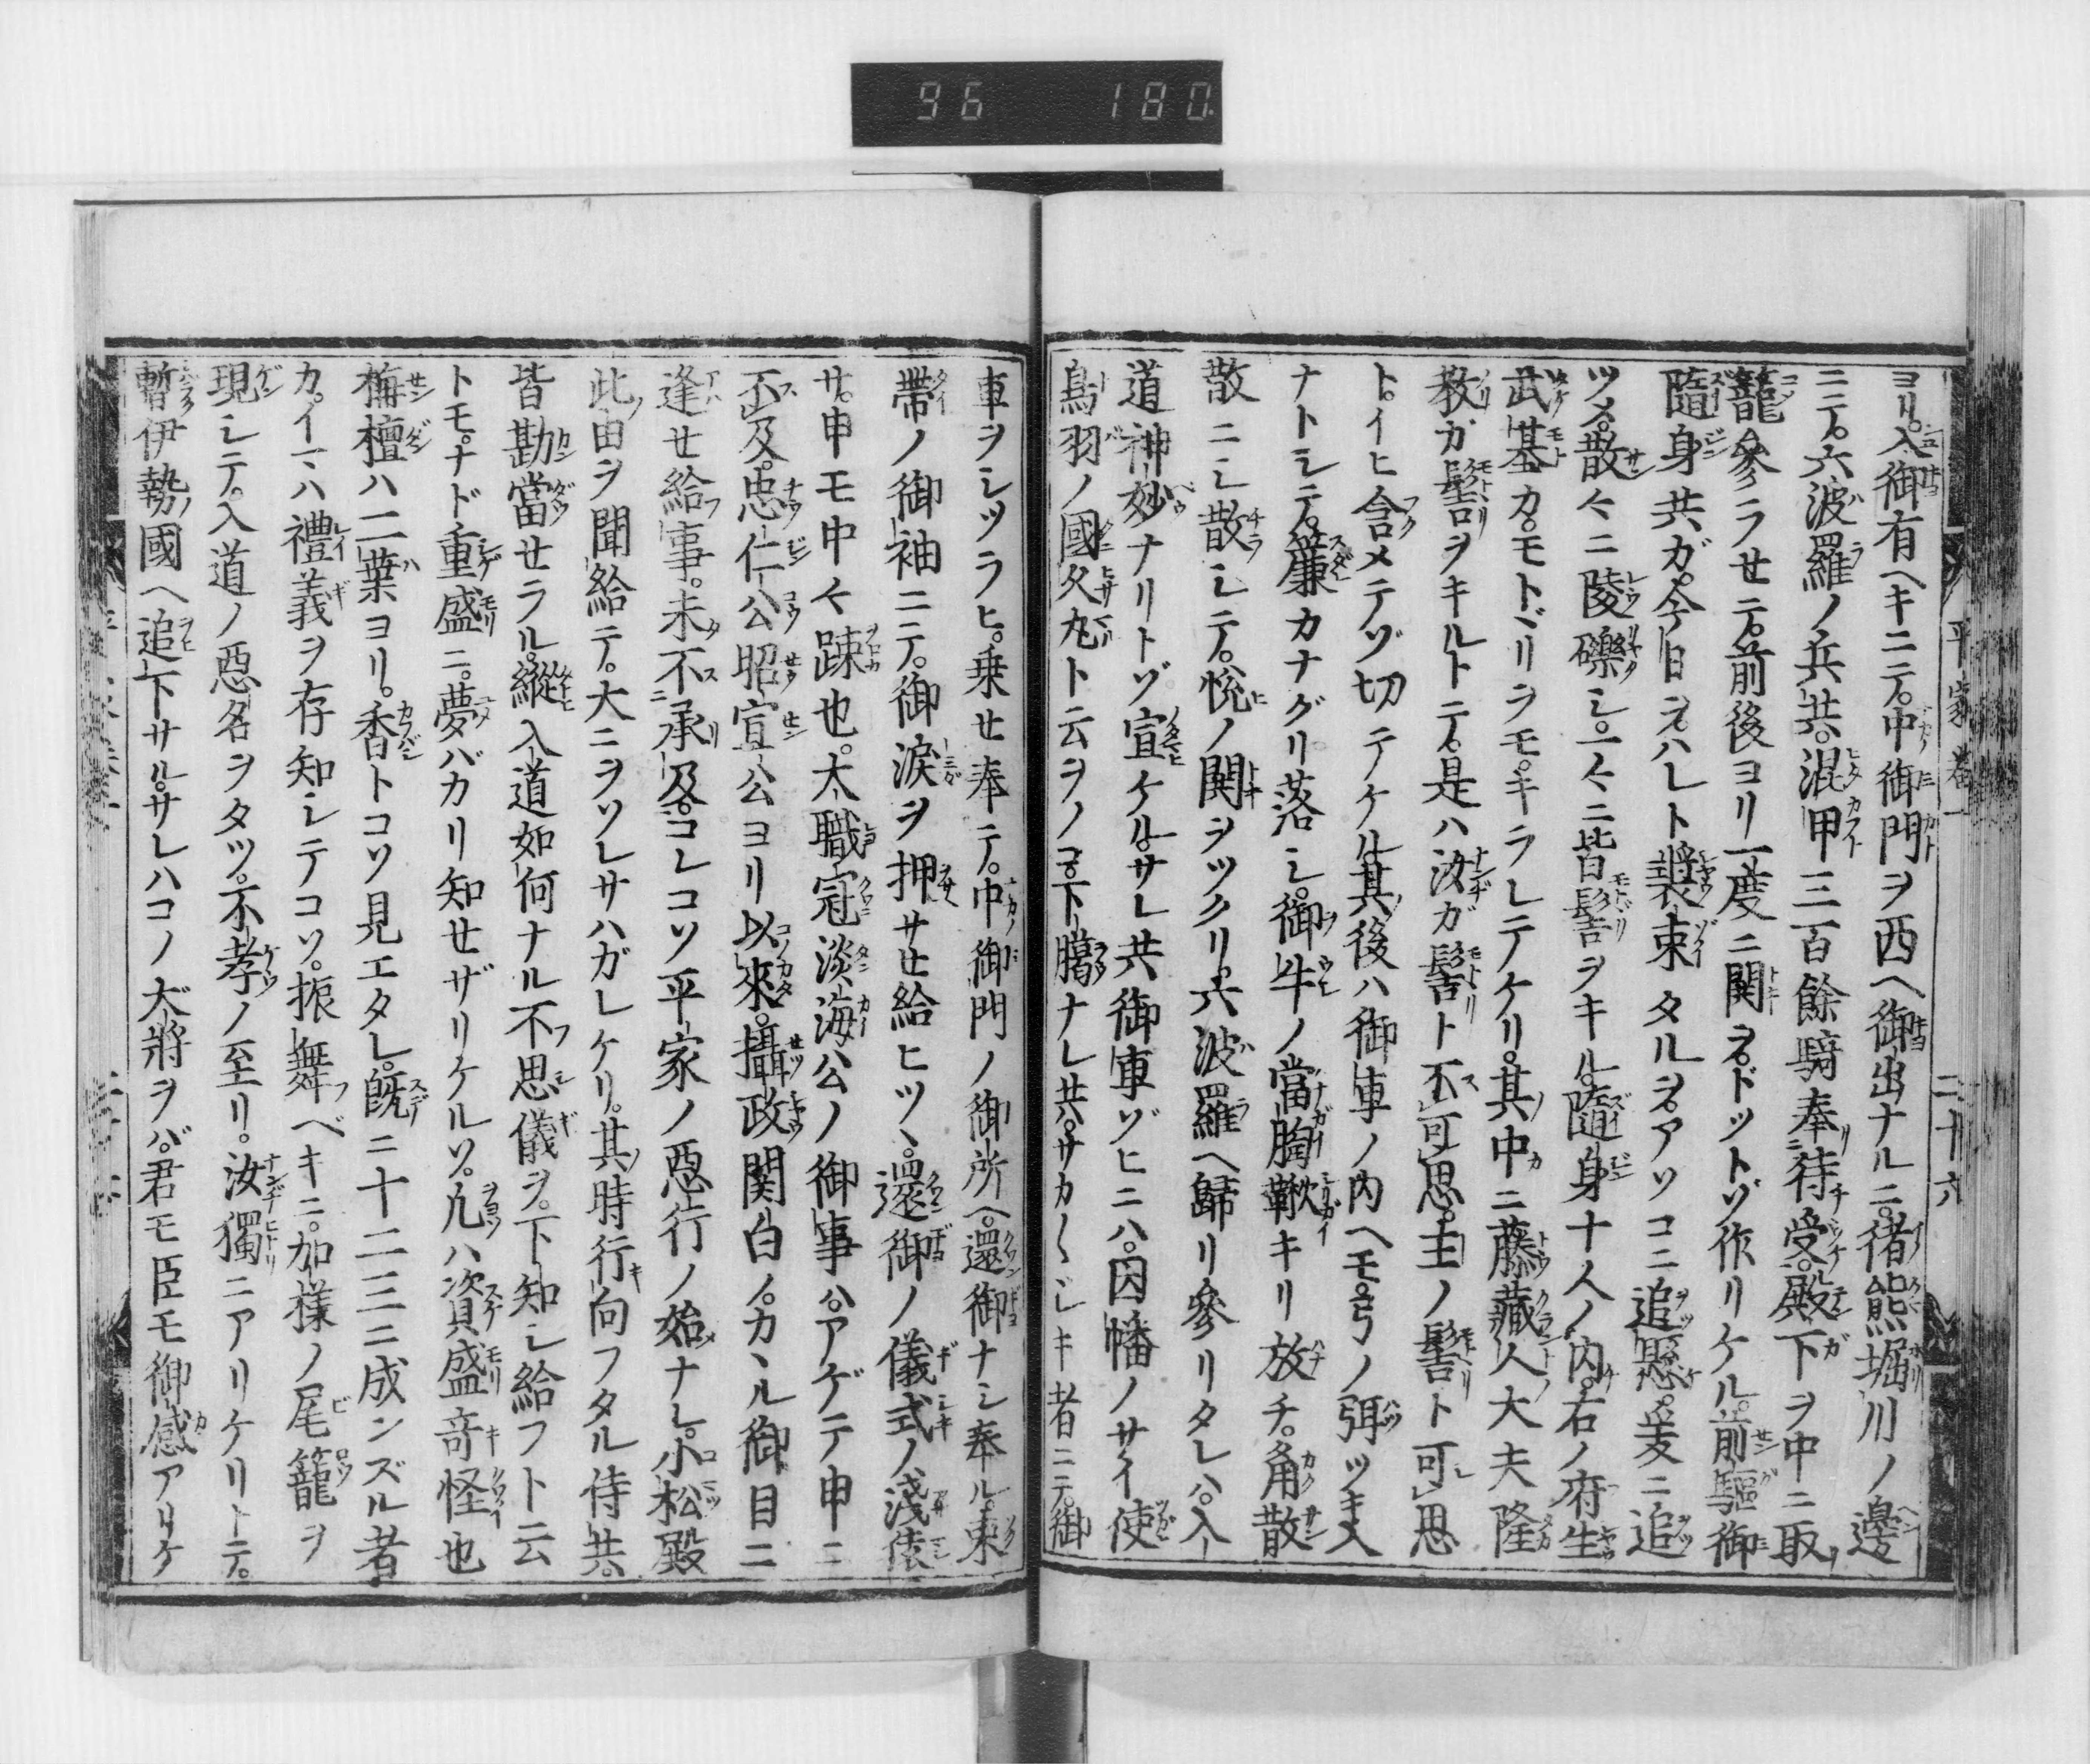 96 180
平家巻一
二十六
ヨリ。入御有ヘキニテ。中御門ヲ西ヘ御出ナルニ。猪熊堀川ノ邊
ニテ。六波羅ノ兵共。混甲三百餘騎奉待受。殿下ヲ中ニ取
籠參ラせテ。前後ヨリ一度ニ関ヲ。ドットゾ作リケル。前驅御
隨身共ガ。今日ヲハレト裝束タルヲ。アソコニ追懸。爰ニ追
ツメ。散々ニ陵礫シ。一々ニ皆髻ヲキル。隨身十人ノ内。右ノ府生
武基カ。モトヾリヲモ。キラレテケリ。其中ニ藤藏人大夫隆
教ガ髻ヲキルトテ。是ハ汝ガ髻ト不可思。主ノ髻ト可思
ト。イヒ含メテゾ切テケル。其後ハ御車ノ内ヘモ。弓ノ弭ツキ入
ナトシテ。簾カナグリ落シ。御牛ノ當胸鞦キリ放チ。角散
散ニシ散シテ。悦ノ関ヲツクリ。六波羅ヘ歸リ參リタレハ。入
道神妙ナリトゾ宣ケル。サレ共御車ゾヒニハ。因幡ノサイ使
鳥羽ノ國久丸ト云ヲノコ。下臈ナレ共。サカ〱シキ者ニテ。御
車ヲシツラヒ。乗せ奉テ。中御門ノ御所ヘ。還御ナシ奉ル。束
帶ノ御袖ニテ。御涙ヲ押サせ給ヒツヽ。還御ノ儀式ノ淺猿
サ。申モ中々踈也。大職冠淡海公ノ御事ハ。アゲテ申ニ
不及。忠仁公昭宣公ヨリ以來。攝政関白ノ。カヽル御目ニ
逢せ給事。未不承及。コレコソ平家ノ惡行ノ始ナレ。小松殿
此由ヲ聞給テ。大ニヲソレサハガレケリ。其時行向フタル侍共。
皆勘當せラル。縦入道如何ナル不思儀ヲ。下知シ給フト云
トモ。ナド重盛ニ。夢バカリ知せザリケルソ。凡ハ資盛奇怪也
栴檀ハ二葉ヨリ。香トコソ見エタレ。既ニ十二三ニ成ンズル者
カ。イマハ禮義ヲ存知シテコソ。振舞ベキニ。加様ノ尾籠ヲ
現シテ。入道ノ惡名ヲタツ。不孝ノ至リ。汝獨ニアリケリトテ。
暫伊勢國ヘ追下サル。サレハコノ大將ヲバ。君モ臣モ御感アリケ